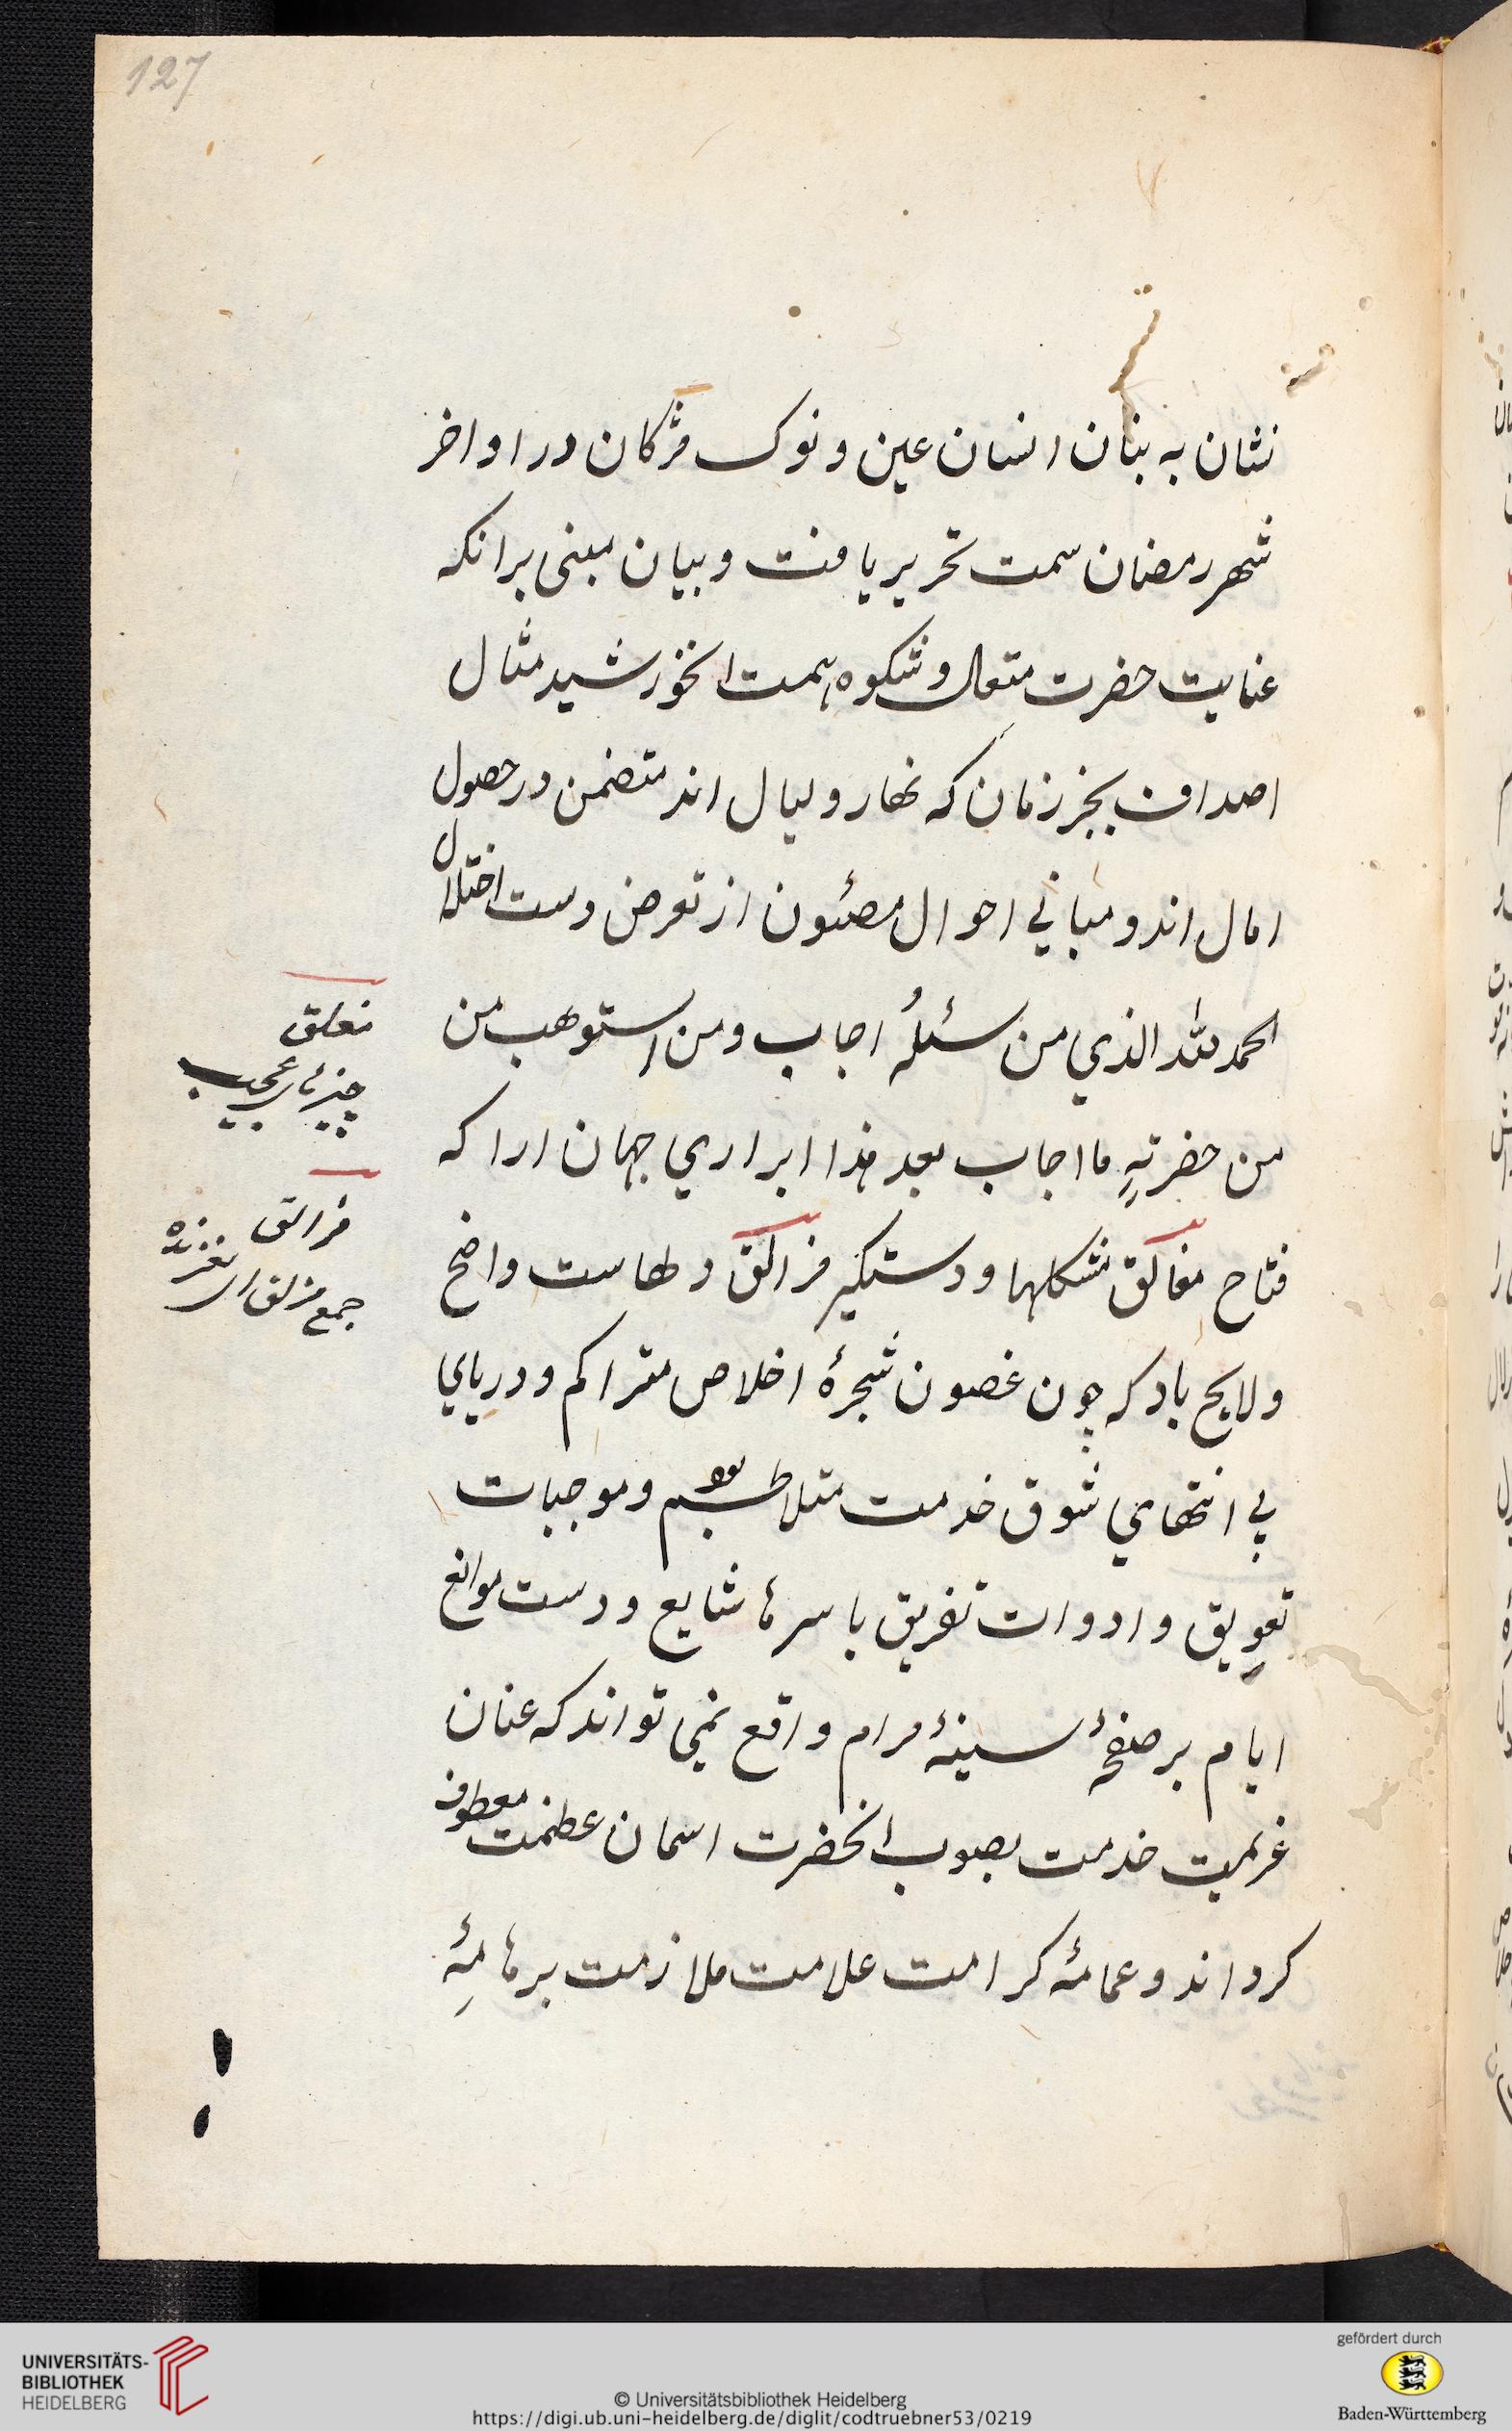 127
نشان به بنان انسان عین و نوک مژکان در اواخر
شهر رمضان سمت تحریر یافت و بیان مبنی برانکه
عنایت حضرت متعال و شکوه همت انخورشید مثال
اصداف بحر زمان که نهار و لیال اند متضمن در حصول
امال اند و مباني احوال مصئون از تعرض دست اختلال
الحمد لله الذي من سئله اجاب و من استوهب من
من حضرتهِ ما اجاب بعد هذا ابر اراي جهان ارا که
فتاح مغالق مشکلها و دستکیر مزالق دلهاست واضح
ولایح باد که چون غصون شجرهٔ اخلاص متراکم و دریاي
پي انتهاي شوق خدمت متلاطم و موجبات
تعویق و ادوات تفریق باسرها شایع و دست موانع
ایام بر صفحهٔ سینهٔ مرام واقع نمي تواند که عنان
عزیمت خدمت بصوب انحضرت اسمان عظمت معطوف
کرداند و عمامهٔ کرامت علامت ملازمت بر هامهٔ
مغلق
چیزهای عجیب
مزالق
لغزنده
جمع مزلق ای
UNIVERSITÄTS-
BIBLIOTHEK
HEIDELBERG
© Universitätsbibliothek Heidelberg
https://digi.ub.uni-heidelberg.de/diglit/codtruebner53/0219
gefördert durch
Baden-Württemberg